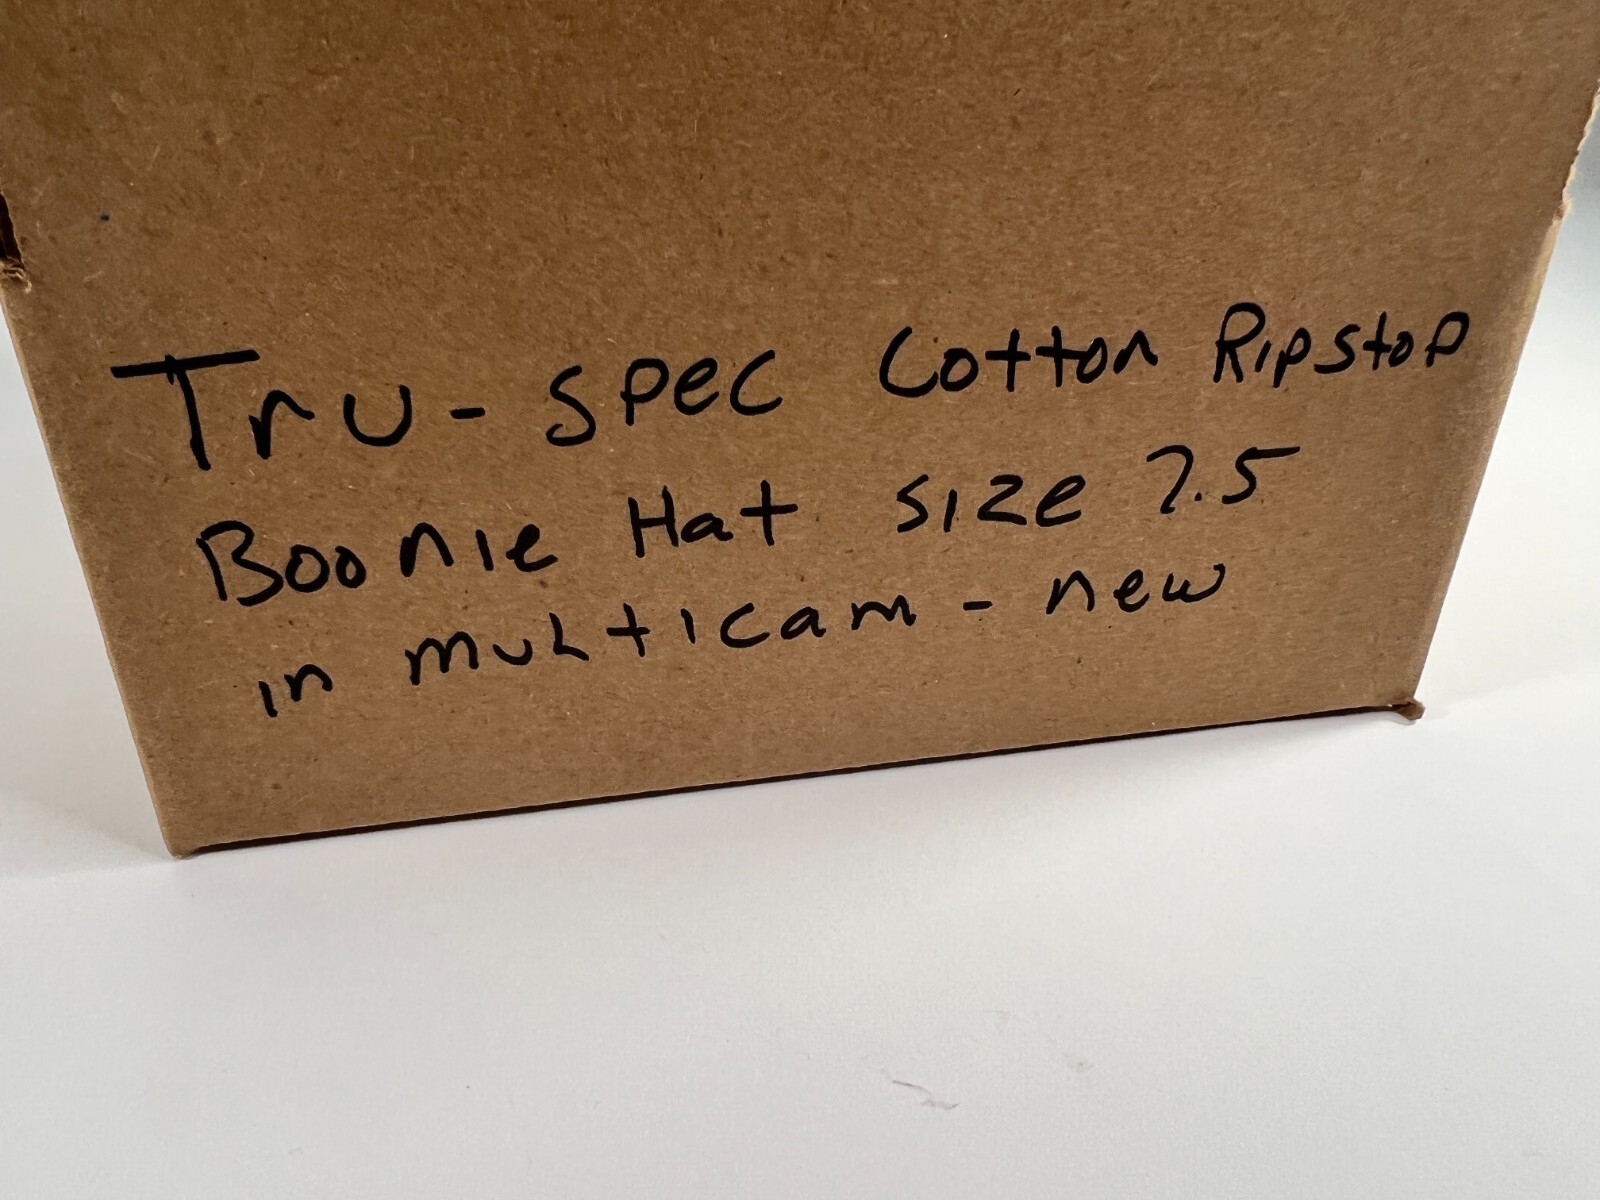 Tru-spec Cotton Ripstop
Boonie Hat size 7.5
in multicam - new